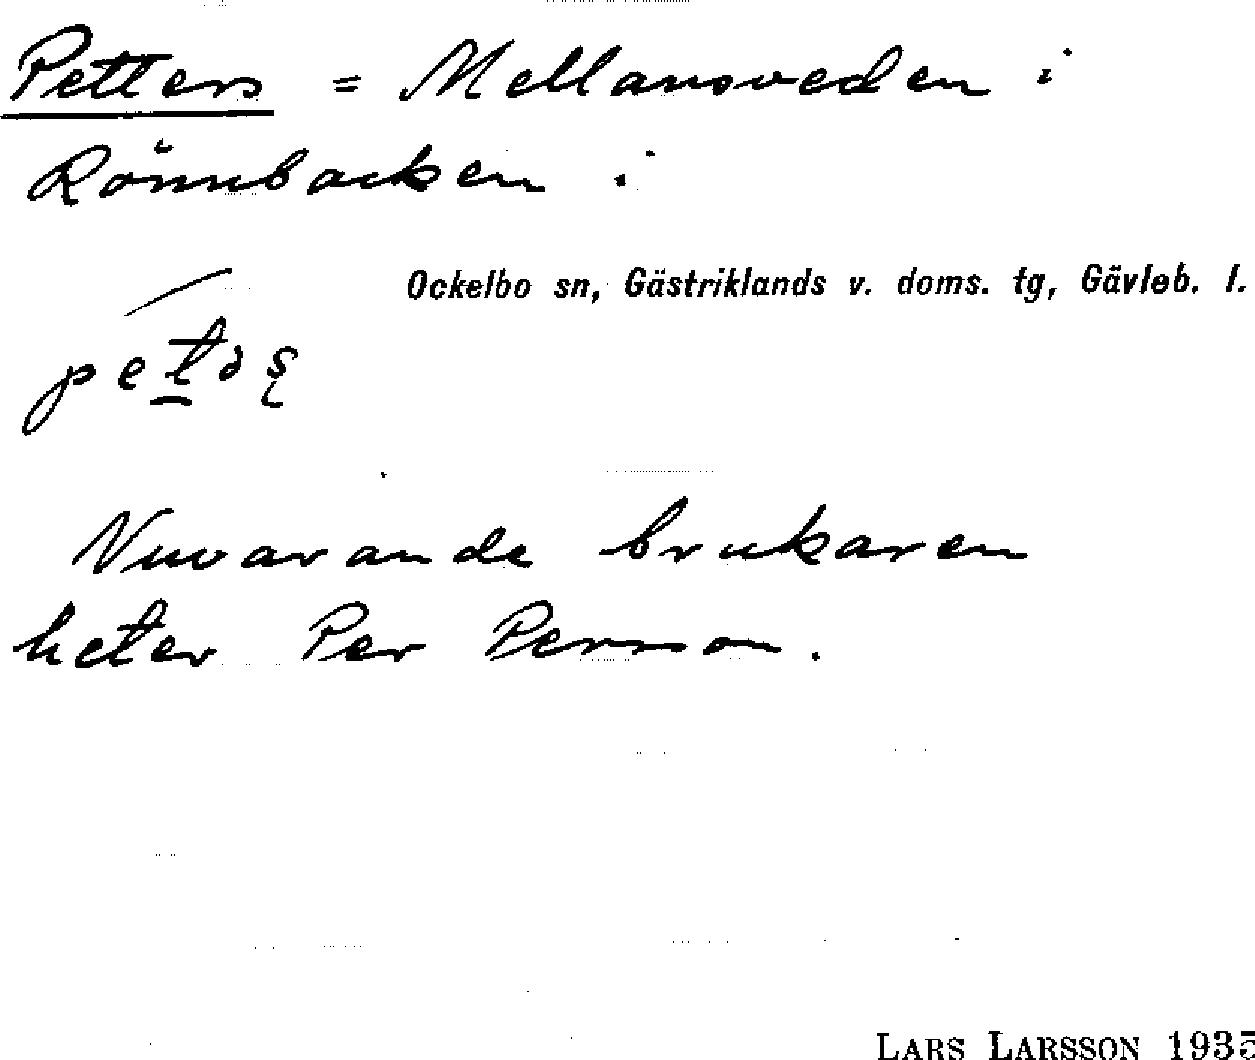 Petters = Mellansveden i
Rönnbacken i
Ockelbo sn, Gästriklands v. doms. tg, Gävleb. l.
Nuvarande brukaren
heter Per Person.
LARS LARSSON 1935